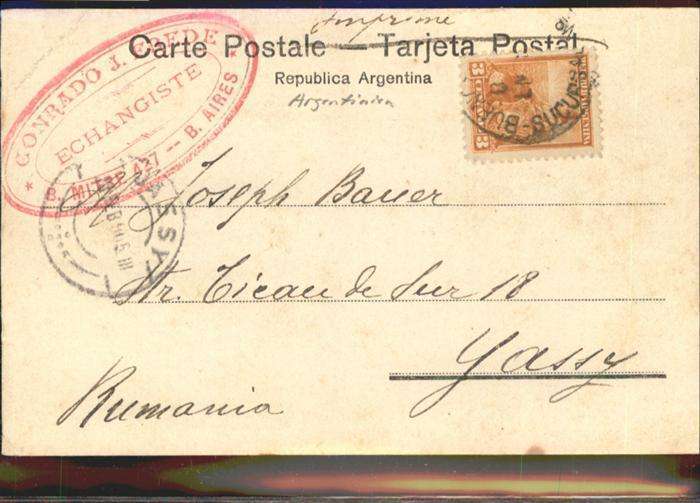 Imprimé
Carte Postale — Tarjeta Postal
Republica Argentina
Argentinien
CONRADO J.
ECHANGISTE
B. MITRE — B. AIRES
3
3
BUENOS
JASSY
Joseph Bauer
Str. de Sur 18
Yassy
Rumania